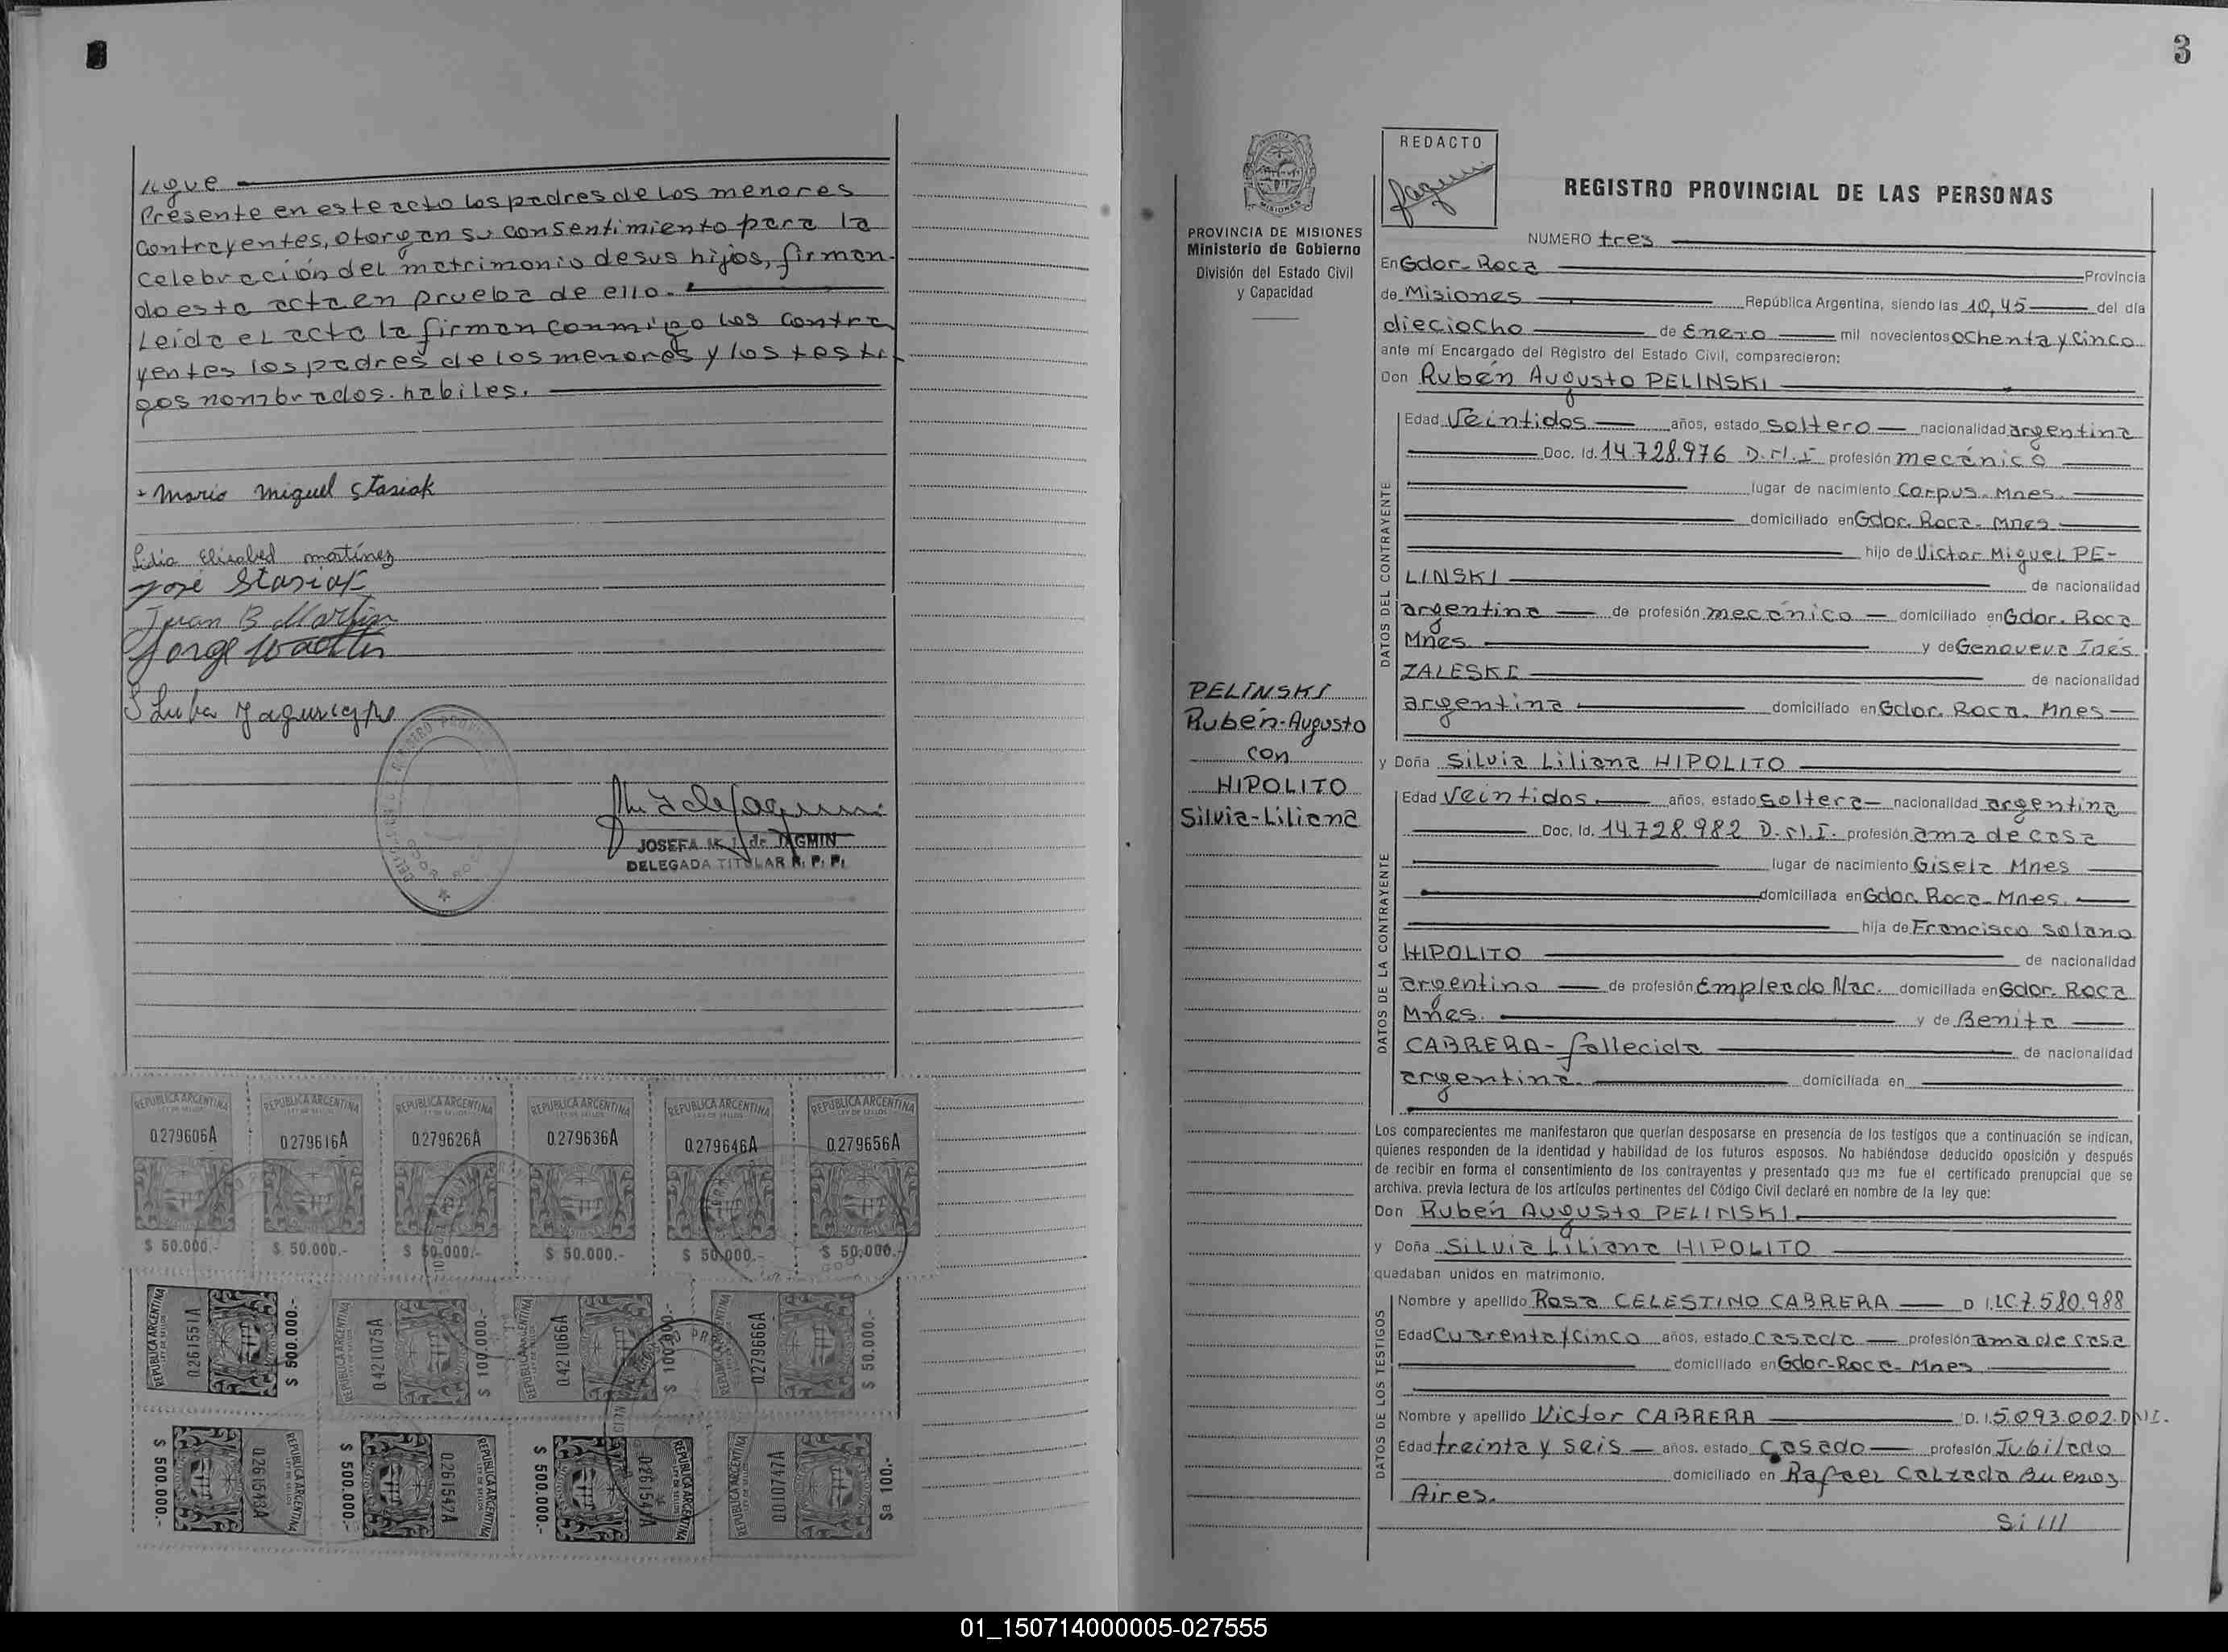 //gue
Presente en este acto los padres de los menores
contrayentes, otorgan su consentimiento para la
celebración del matrimonio de sus hijos, firman-
do esta acta en prueba de ello.-
Leida el acta la firman conmigo los contra
yentes los padres de los menores y los testi
gos nombrados. habiles.
Mario Miguel Stasiak
Lidia Elisabed martinez
José Stasiak
Juan B Martin
Jorge
Luba
JOSEFA M. J. de TAGMIN
DELEGADA TITULAR R. P. P.
REPUBLICA ARGENTINA REPUBLICA ARGENTINA REPUBLICA ARGENTINA REPUBLICA ARGENTINA REPUBLICA ARGENTINA REPUBLICA ARGENTINA
LEY DE SELLOS LEY DE SELLOS LEY DE SELLOS LEY DE SELLOS LEY DE SELLOS LEY DE SELLOS
0.279606A 0.279616A 0.279626A 0.279636A 0.279646A 0.279656A
$ 50.000.- $ 50.000.- $ 50.000.- $ 50.000.- $ 50.000.- $ 50.000.-
REPUBLICA ARGENTINA 0.261551A $ 500.000.-
REPUBLICA ARGENTINA 0.421075A $ 100.000.-
REPUBLICA ARGENTINA 0.421066A $ 100.000.-
REPUBLICA ARGENTINA 0.279666A $ 50.000.-
$ 500.000.- 0.261543A REPUBLICA ARGENTINA
$ 500.000.- 0.261542A REPUBLICA ARGENTINA
$ 500.000.- REPUBLICA ARGENTINA
REPUBLICA ARGENTINA 0.010747A $a 100.-
3
MISIONES
PROVINCIA DE MISIONES
Ministerio de Gobierno
División del Estado Civil
y Capacidad
PELINSKI
Rubén-Augusto
con
HIPOLITO
Silvia-Liliana
REDACTO
REGISTRO PROVINCIAL DE LAS PERSONAS
NUMERO tres
En Gdor- Roca Provincia
de Misiones República Argentina, siendo las 10,45 del día
dieciocho de Enero mil novecientos ochenta y cinco
ante mí Encargado del Registro del Estado Civil, comparecieron:
Don Rubén Augusto PELINSKI
DATOS DEL CONTRAYENTE
Edad Veintidos años, estado soltero nacionalidad argentina
Doc. Id. 14.728.976 D.N.I profesión mecánico
lugar de nacimiento Corpus- Mnes.
domiciliado en Gdor. Roca- Mnes
hijo de Victor Miguel PE-
LINSKI de nacionalidad
argentina de profesión mecánico domiciliado en Gdor. Roca
Mnes. y de Genoveva Inés
ZALESKI de nacionalidad
argentina domiciliado en Gdor. Roca. Mnes
y Doña Silvia Liliana HIPOLITO
DATOS DE LA CONTRAYENTE
Edad Veintidos años, estado soltera nacionalidad argentina
Doc. Id. 14.728.982 D.N.I. profesión ama de casa
lugar de nacimiento Gisela Mnes
domiciliada en Gdor. Roca- Mnes.
hija de Francisco Solano
HIPOLITO de nacionalidad
argentino de profesión Empleado Nac. domiciliada en Gdor. Roca
Mnes. y de Benita
CABRERA- fallecida de nacionalidad
argentina. domiciliada en
Los comparecientes me manifestaron que querían desposarse en presencia de los testigos que a continuación se indican,
quienes responden de la identidad y habilidad de los futuros esposos. No habiéndose deducido oposición y después
de recibir en forma el consentimiento de los contrayentes y presentado que me fue el certificado prenupcial que se
archiva, previa lectura de los artículos pertinentes del Código Civil declaré en nombre de la ley que:
Don Rubén Augusto PELINSKI
y Doña Silvia Liliana HIPOLITO
quedaban unidos en matrimonio.
DATOS DE LOS TESTIGOS
Nombre y apellido Rosa CELESTINO CABRERA D.I. LC 7.580.988
Edad Cuarenta y Cinco años, estado casada profesión ama de casa
domiciliado en Gdor-Roca- Mnes
Nombre y apellido Victor CABRERA D.I. 5.093.002.DNI.
Edad treinta y seis años, estado Casado profesión Jubilado
domiciliado en Rafael Calzada Buenos
Aires.
Si///
01_150714000005-027555